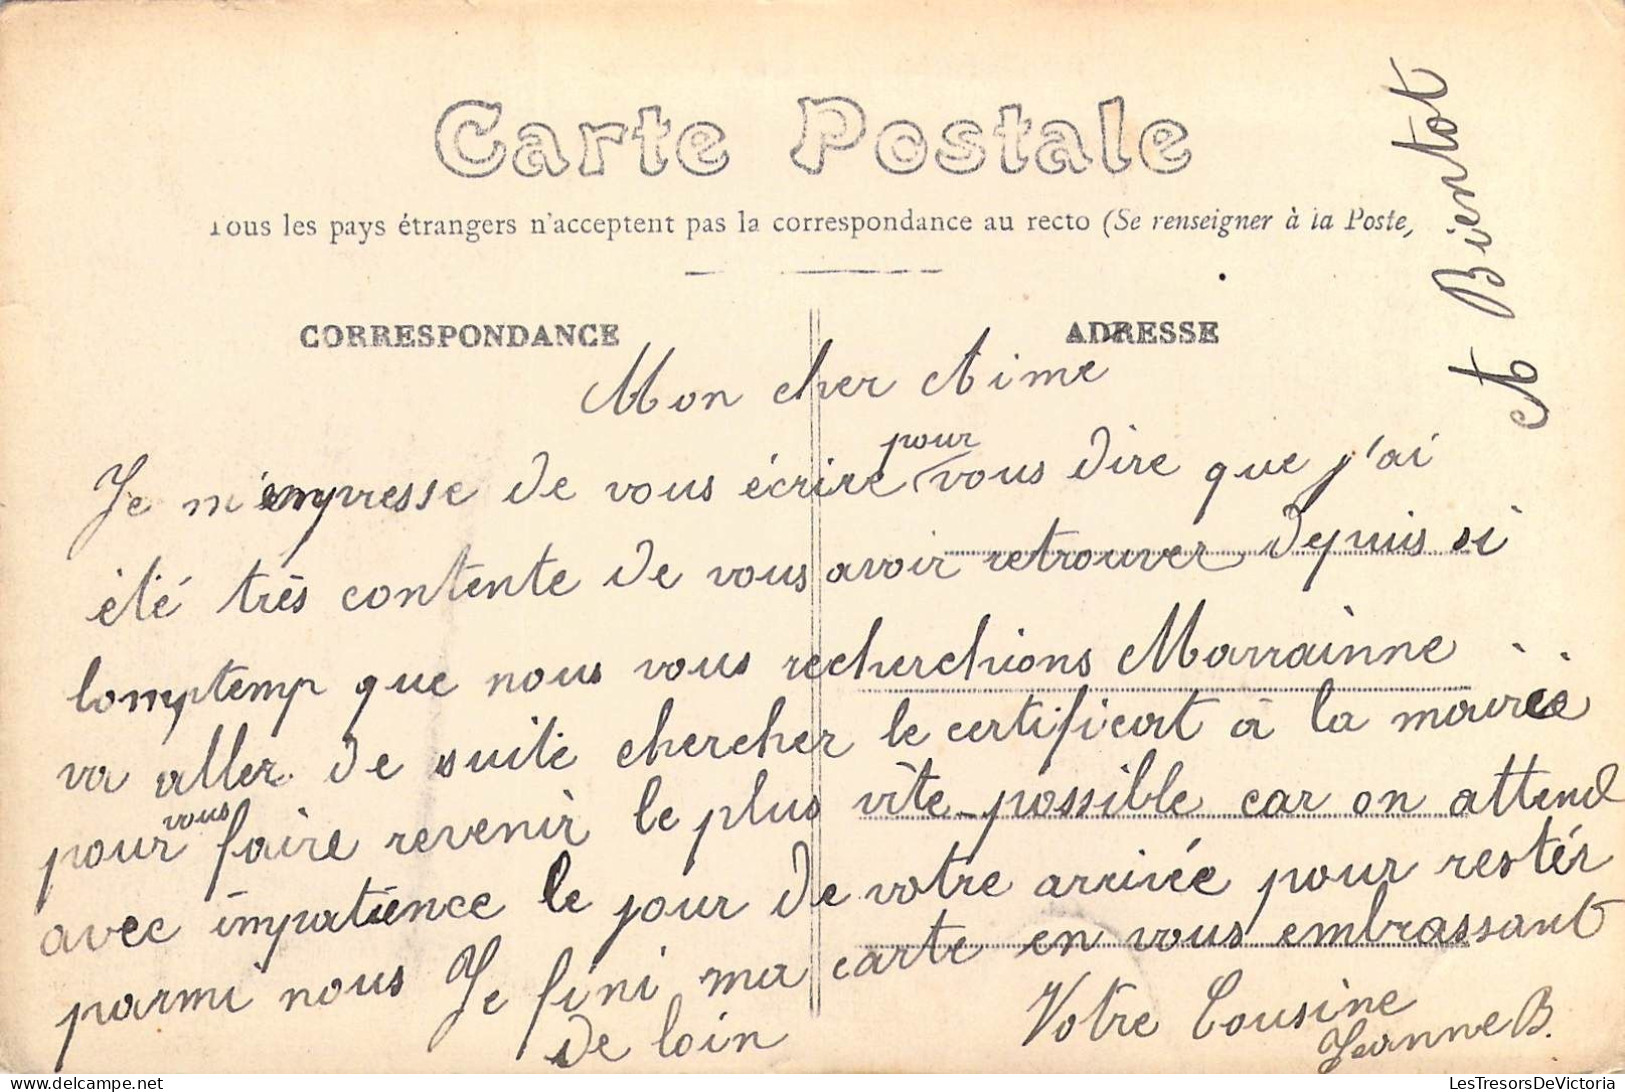 Carte Postale
Tous les pays étrangers n'acceptent pas la correspondance au recto (Se renseigner à la Poste,
CORRESPONDANCE
ADRESSE
A Bientot
Mon cher Aime
Je m'empresse de vous écrire pour vous dire que j'ai
été très contente de vous avoir retrouver depuis si
lomptemp que nous vous recherchions Marrainne ..
va aller de suite chercher le certificat à la mairee
pour vous faire revenir le plus vite possible car on attend
avec impatience le jour de votre arrivée pour restér
parmi nous Je fini ma carte en vous embrassant
de loin
Votre Cousine
Jeanne B.
LesTresorsDeVictoria